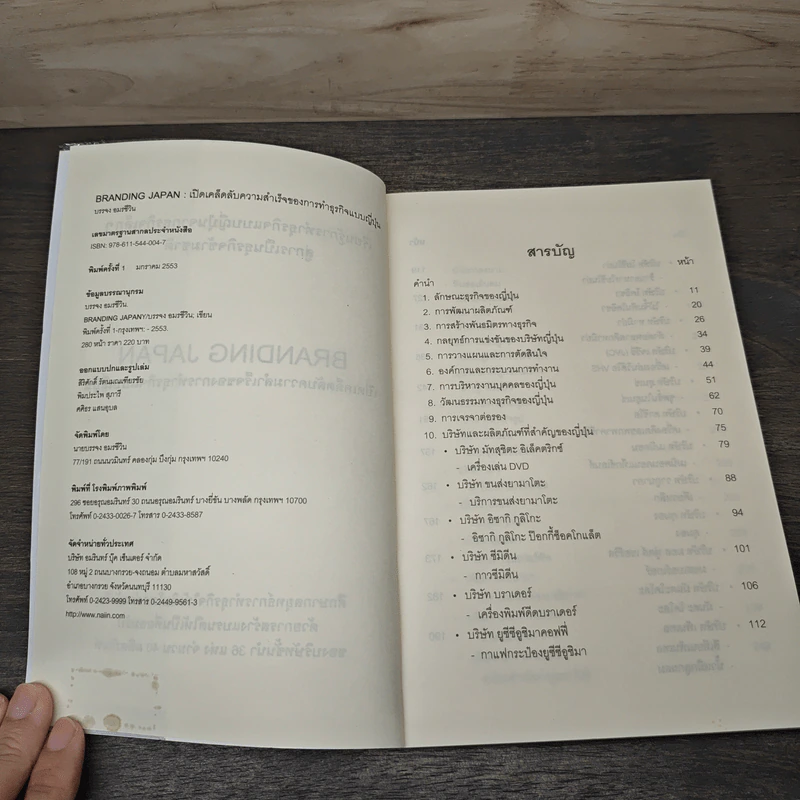 BRANDING JAPAN : เปิดเคล็ดลับความสำเร็จของการทำธุรกิจแบบญี่ปุ่น
บรรจง อมรชีวิน
เลขมาตรฐานสากลประจำหนังสือ
ISBN: 978-611-544-004-7
พิมพ์ครั้งที่ 1 มกราคม 2553
ข้อมูลบรรณานุกรม
บรรจง อมรชีวิน.
BRANDING JAPAN/บรรจง อมรชีวิน; เขียน
พิมพ์ครั้งที่ 1-กรุงเทพฯ: - 2553.
280 หน้า ราคา 220 บาท
ออกแบบปกและรูปเล่ม
สิริศักดิ์ รัตนมณเฑียรชัย
พิมประไพ สุภารี
ศศิธร แสนอุบล
จัดพิมพ์โดย
นายบรรจง อมรชีวิน
77/191 ถนนนวมินทร์ คลองกุ่ม บึงกุ่ม กรุงเทพฯ 10240
พิมพ์ที่ โรงพิมพ์ภาพพิมพ์
296 ซอยอรุณอมรินทร์ 30 ถนนอรุณอมรินทร์ บางยี่ขัน บางพลัด กรุงเทพฯ 10700
โทรศัพท์ 0-2433-0026-7 โทรสาร 0-2433-8587
จัดจำหน่ายทั่วประเทศ
บริษัท อมรินทร์ บุ๊ค เซ็นเตอร์ จำกัด
108 หมู่ 2 ถนนบางกรวย-จงถนอม ตำบลมหาสวัสดิ์
อำเภอบางกรวย จังหวัดนนทบุรี 11130
โทรศัพท์ 0-2423-9999 โทรสาร 0-2449-9561-3
http://www.naiin.com
สารบัญ
หน้า
คำนำ
1. ลักษณะธุรกิจของญี่ปุ่น 11
2. การพัฒนาผลิตภัณฑ์ 20
3. การสร้างพันธมิตรทางธุรกิจ 26
4. กลยุทธ์การแข่งขันของบริษัทญี่ปุ่น 34
5. การวางแผนและการตัดสินใจ 39
6. องค์การและกระบวนการทำงาน 44
7. การบริหารงานบุคคลของญี่ปุ่น 51
8. วัฒนธรรมทางธุรกิจของญี่ปุ่น 62
9. การเจรจาต่อรอง 70
10. บริษัทและผลิตภัณฑ์ที่สำคัญของญี่ปุ่น 75
• บริษัท มัทสุชิตะ อิเล็คตริกซ์ 79
- เครื่องเล่น DVD
• บริษัท ขนส่งยามาโตะ 88
- บริการขนส่งยามาโตะ
• บริษัท อิซากิ กูลิโกะ 94
- อิซากิ กูลิโกะ ป๊อกกี้ช็อคโกแล็ต
• บริษัท ซีมิดีน 101
- กาวซีมิดีน
• บริษัท บราเดอร์ 106
- เครื่องพิมพ์ดีดบราเดอร์
• บริษัท ยูซีซีอูซิมาคอฟฟี่ 112
- กาแฟกระป๋องยูซีซีอูซิมา